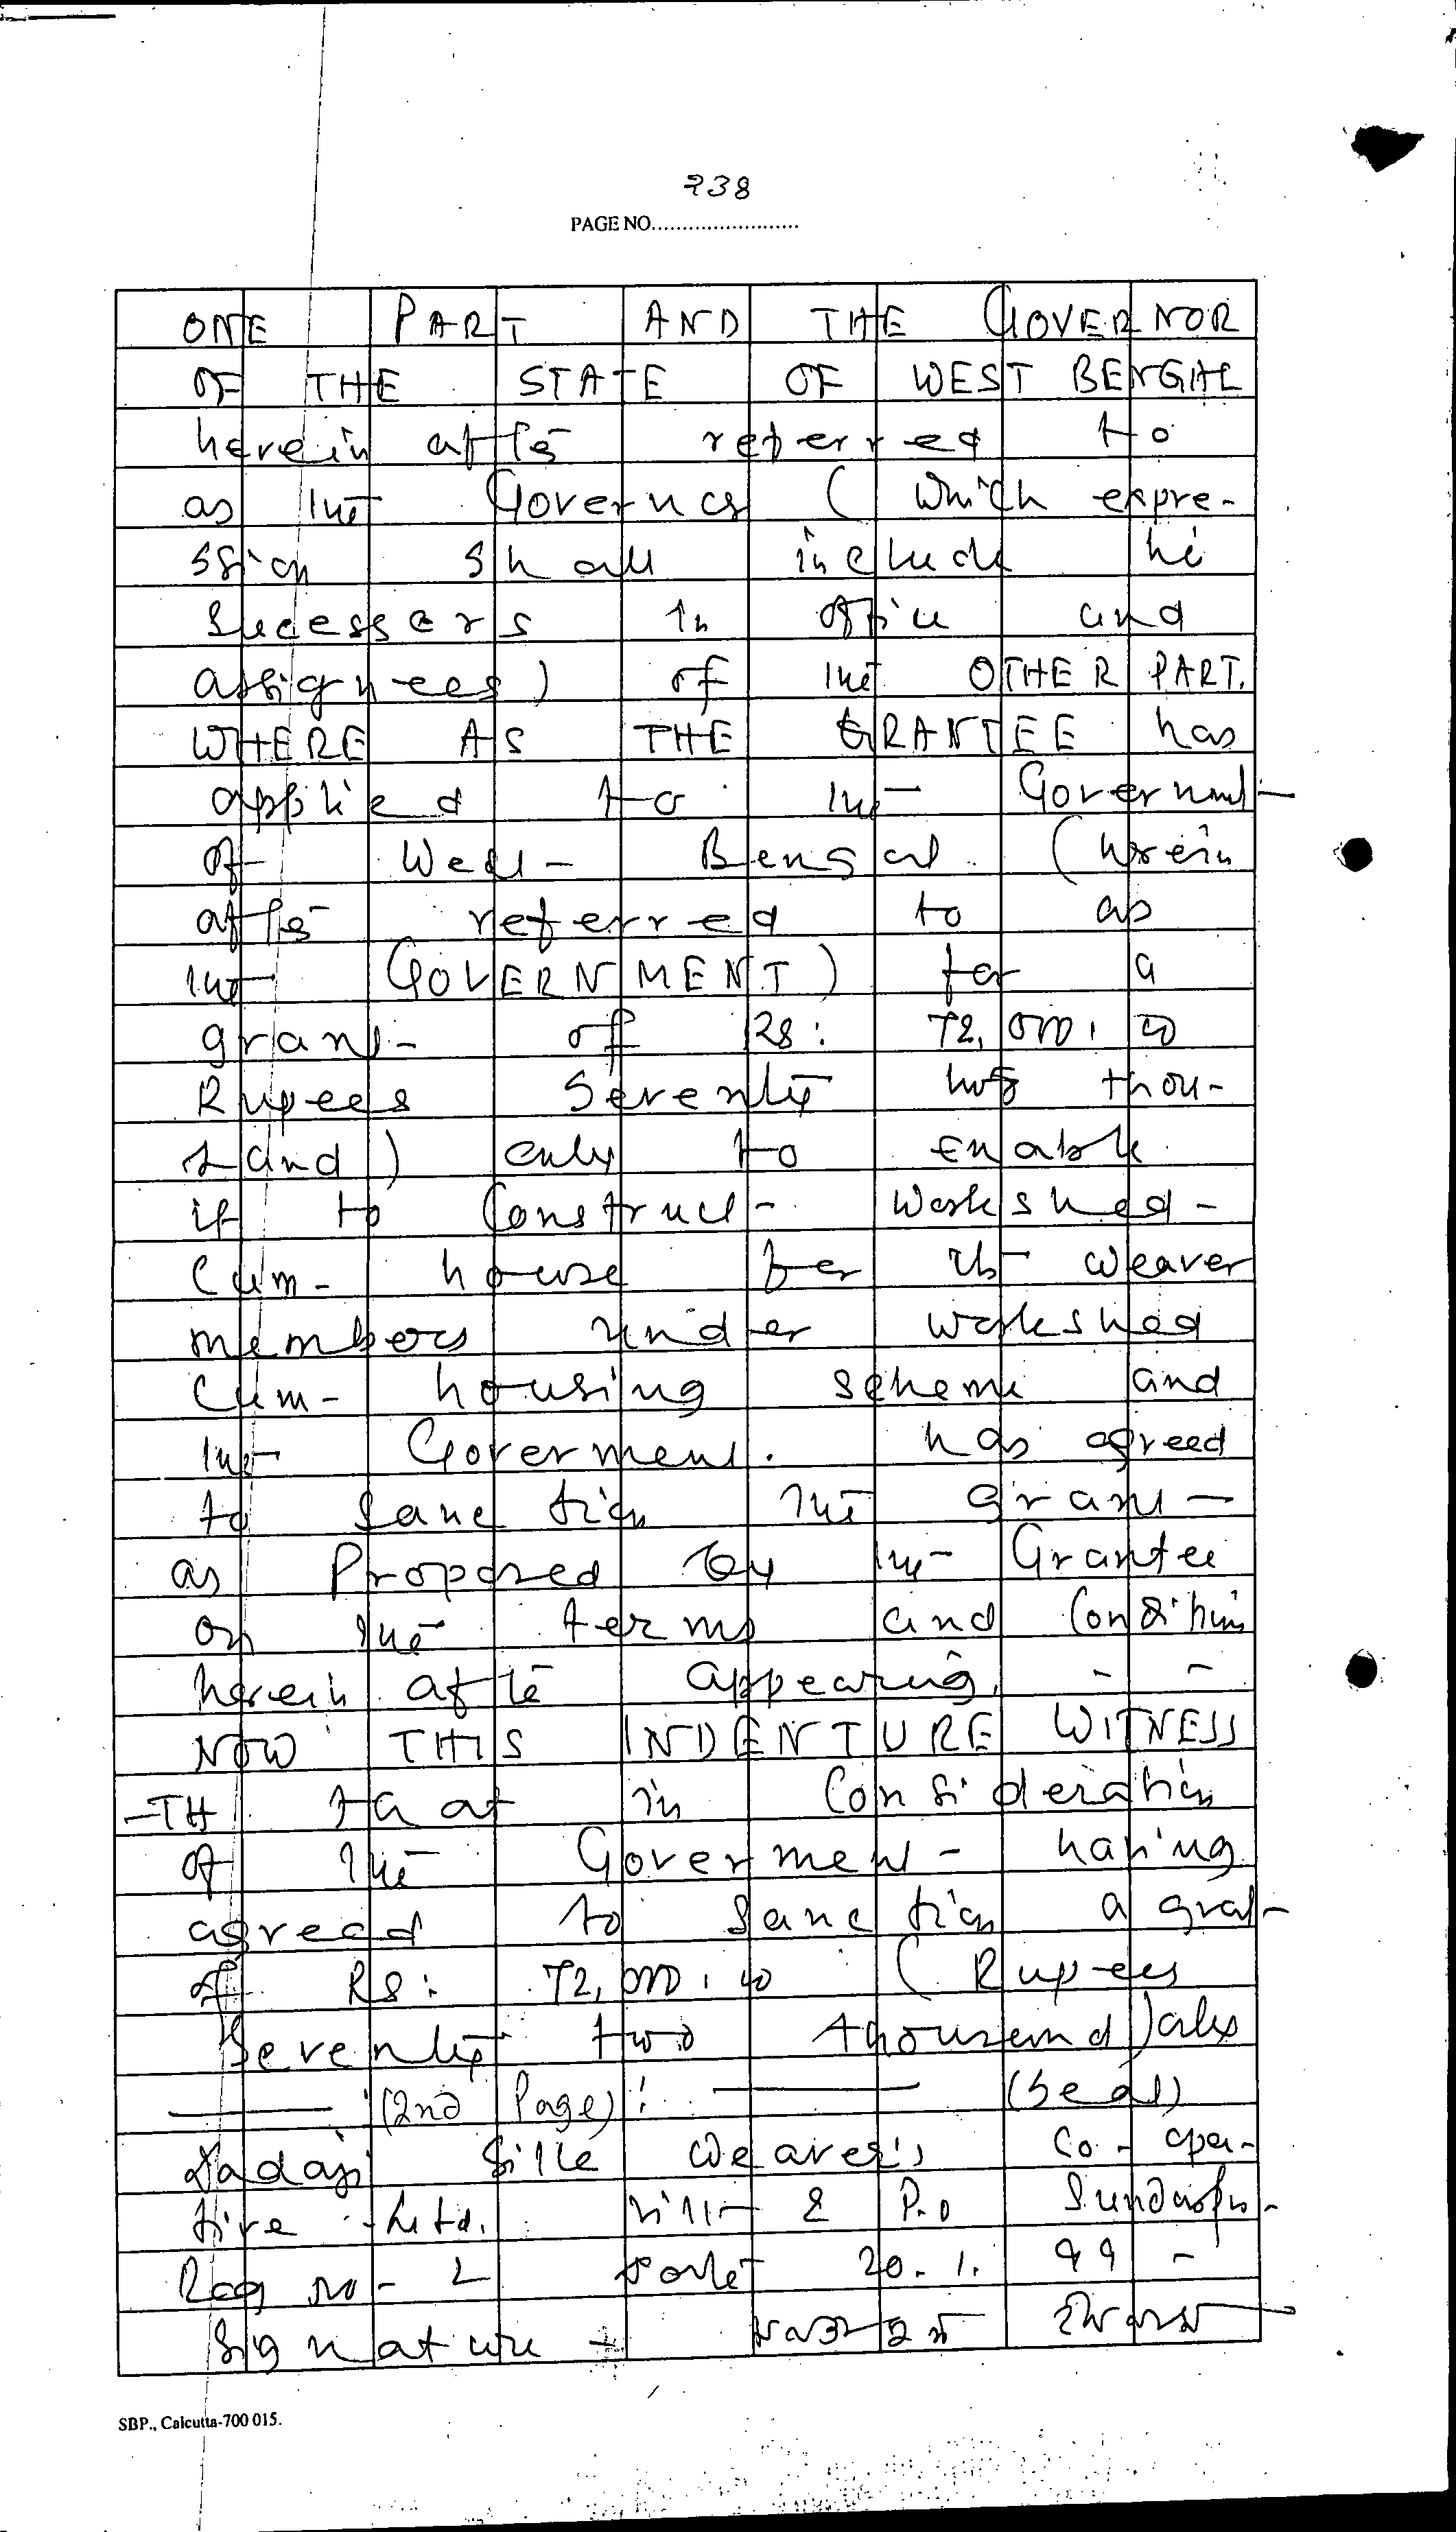 238
PAGE NO.........................
ONE PART AND THE GOVERNOR
OF THE STATE OF WEST BENGAL
herein after referred to
as the Governor ( which expre-
ssion shall include his
Sucessers in office and
assignees) of the OTHER PART.
WHERE AS THE GRANTEE has
applied to the Government
of West Bengal (herein
after referred to as
the GOVERNMENT) for a
grant of RS: 72,000.00
Rupees Seventy two thou-
sand) only to enable
it to Construct Workshed-
Cum- house for its weaver
members under workshed
Cum- housing scheme and
the Goverment. has agreed
to Sanction the grant
as Proposed by the Grantee
on the terms and Conditions
herein after appearing. - -
NOW THIS INDENTURE WITNESS
-TH that in Consideration
of the Goverment having
agreed to Sanction a grant
of RS: 72,000.00 (Rupees
Seventy two thousand) only
(2nd Page): (Seal)
Dadaji Silk Weaver's Co-opera-
tive Ltd. Vill & P.O
Reg no- 2 Date 20.1.99 -
Signature -
SBP., Calcutta-700 015.